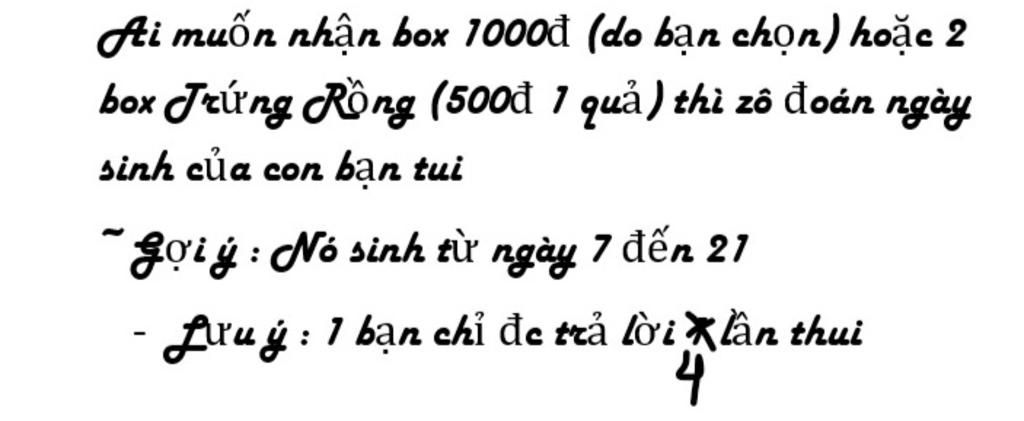 Ai muốn nhận box 1000đ (do bạn chọn) hoặc 2
box Trứng Rồng (500đ 1 quả) thì zô đoán ngày
sinh của con bạn tui
~ Gợi ý : Nó sinh từ ngày 7 đến 21
- Lưu ý : 1 bạn chỉ đc trả lời lần thui
4